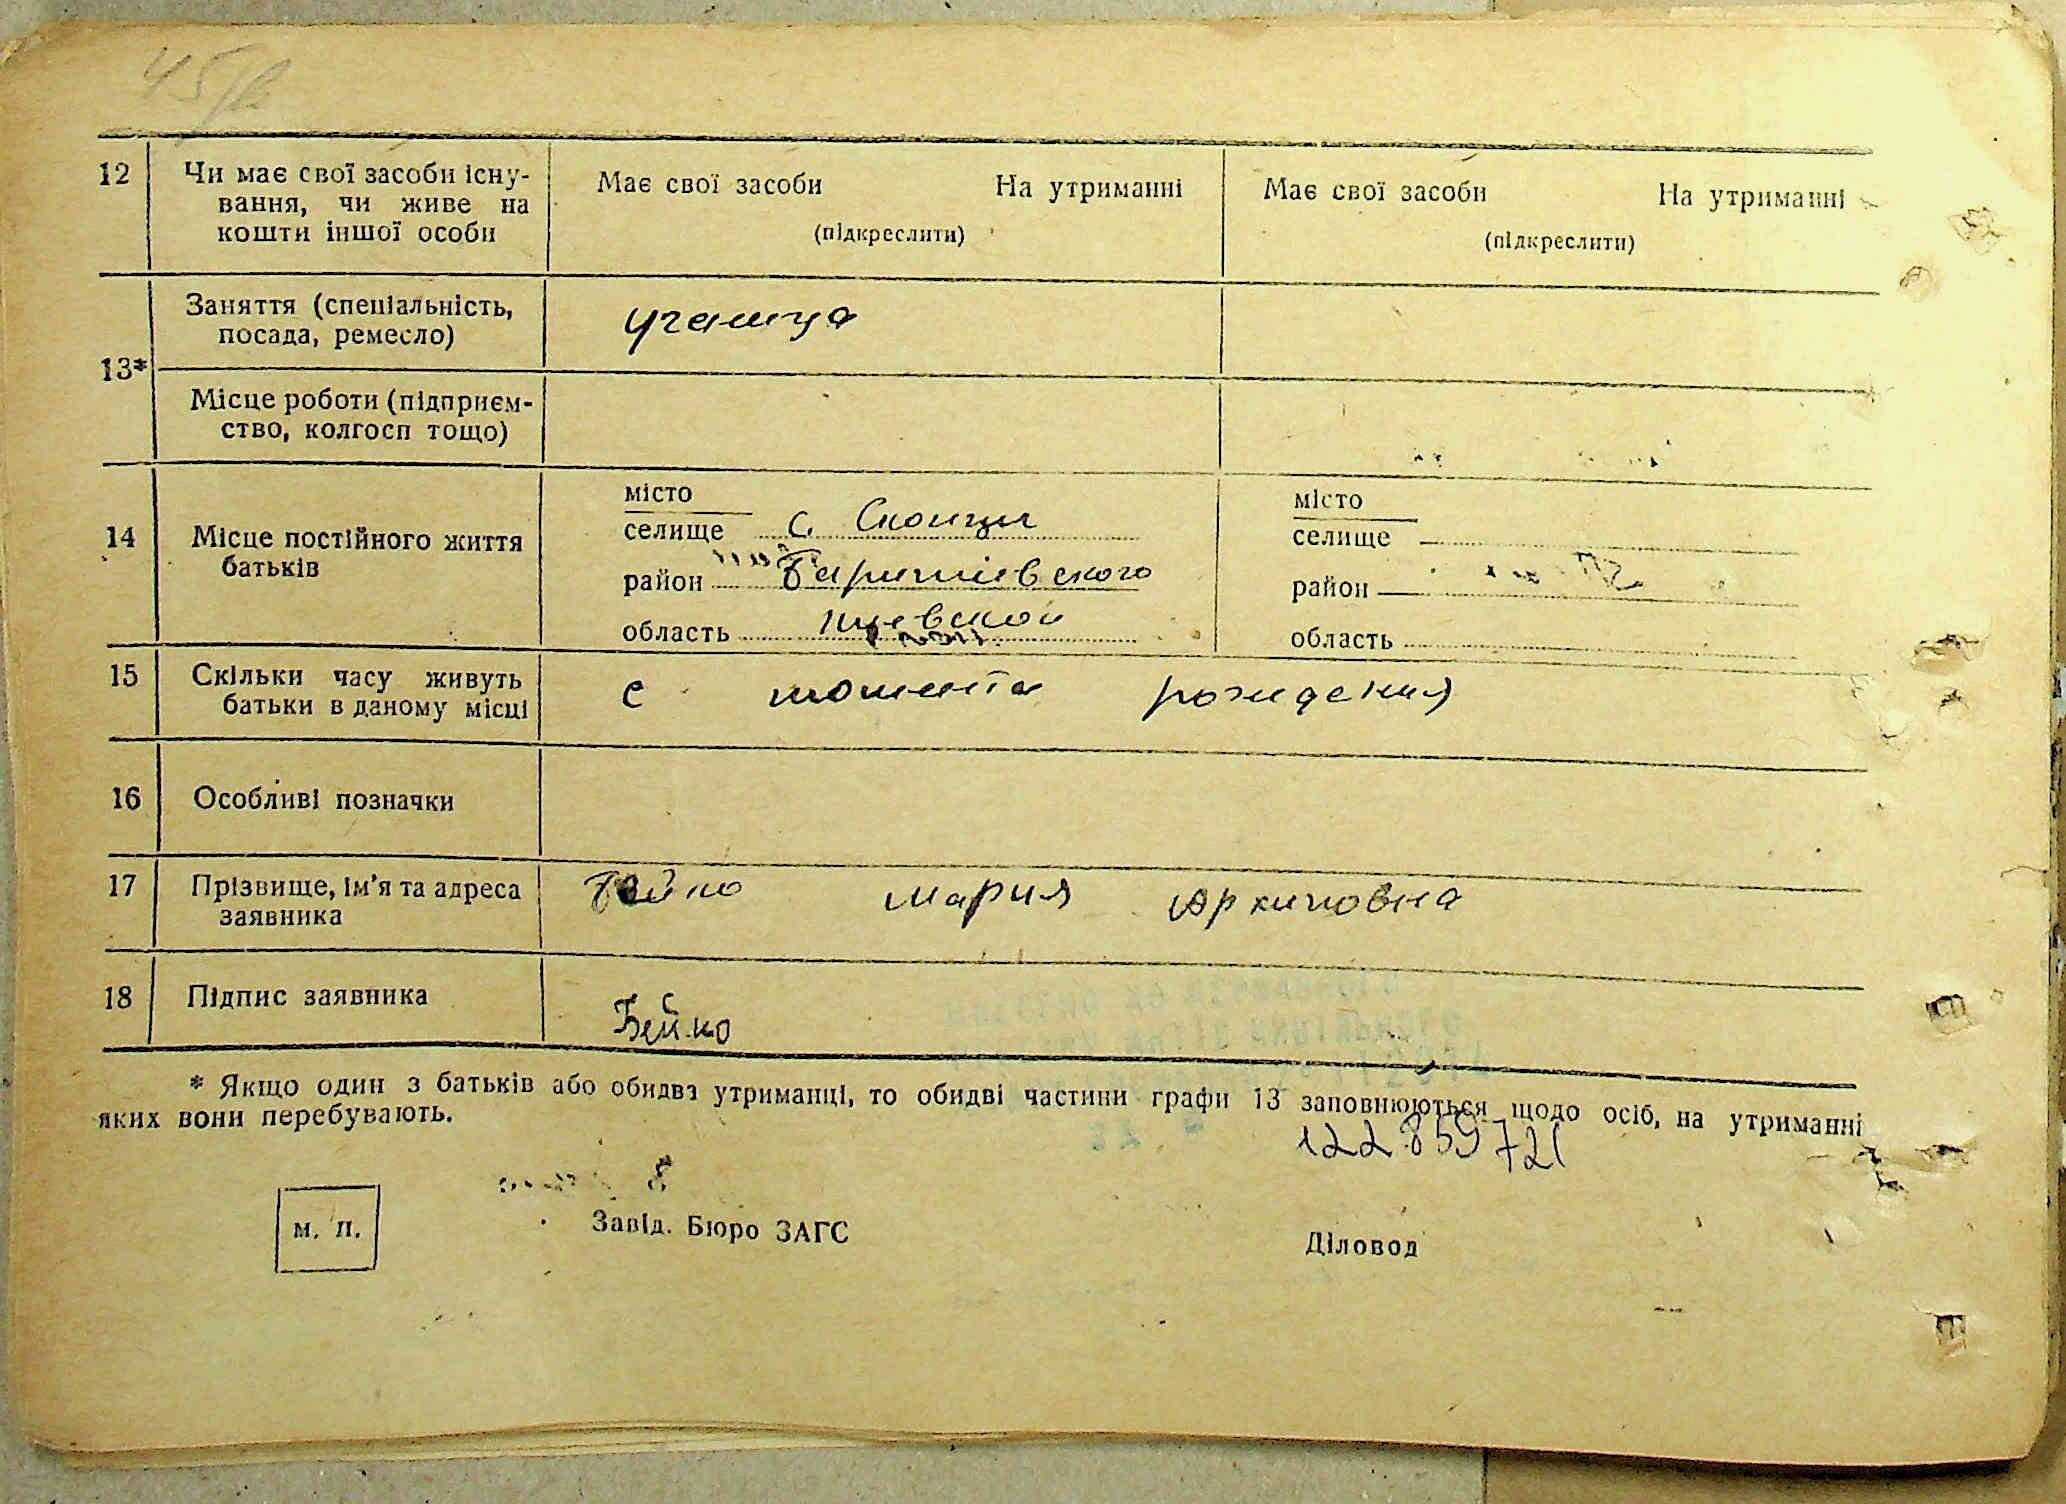 12 Чи має свої засоби існу- Має свої засоби На утриманні Має свої засоби На утриманні
вання, чи живе на (підкреслити) (підкреслити)
кошти іншої особи
Заняття (спеціальність, ученица
посада, ремесло)
13*
Місце роботи (підприєм-
ство, колгосп тощо)
місто місто
14 Місце постійного життя селище с. селище
батьків район Баришевского район
область Киевской область
15 Скільки часу живуть с момента рождения
батьки в даному місці
16 Особливі позначки
17 Прізвище, ім'я та адреса Бейко Мария Архиповна
заявника
18 Підпис заявника Бейко
* Якщо один з батьків або обидва утриманці, то обидві частини графи 13 заповнюються щодо осіб, на утриманні
яких вони перебувають.
122 859 721
м. п. Завід. Бюро ЗАГС Діловод